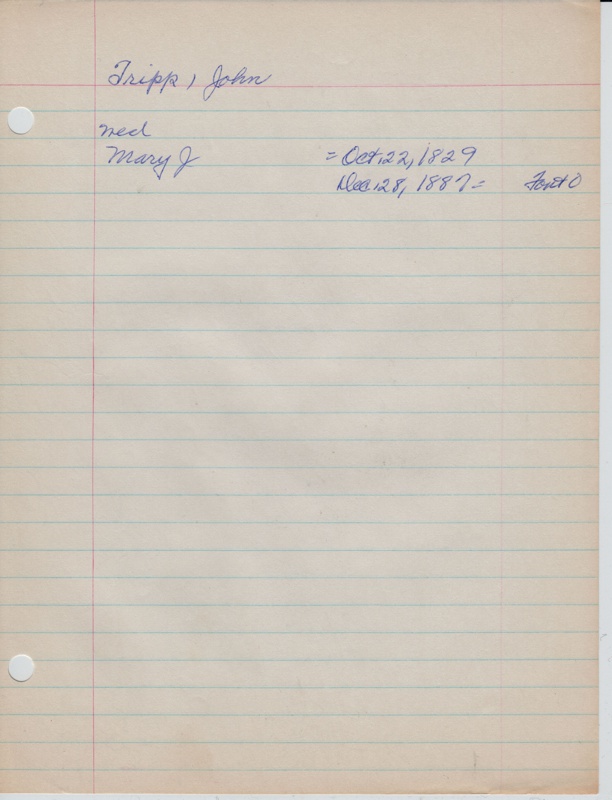 Tripp, John
med
Mary J = Oct. 22, 1829
Dec. 28, 1887 =